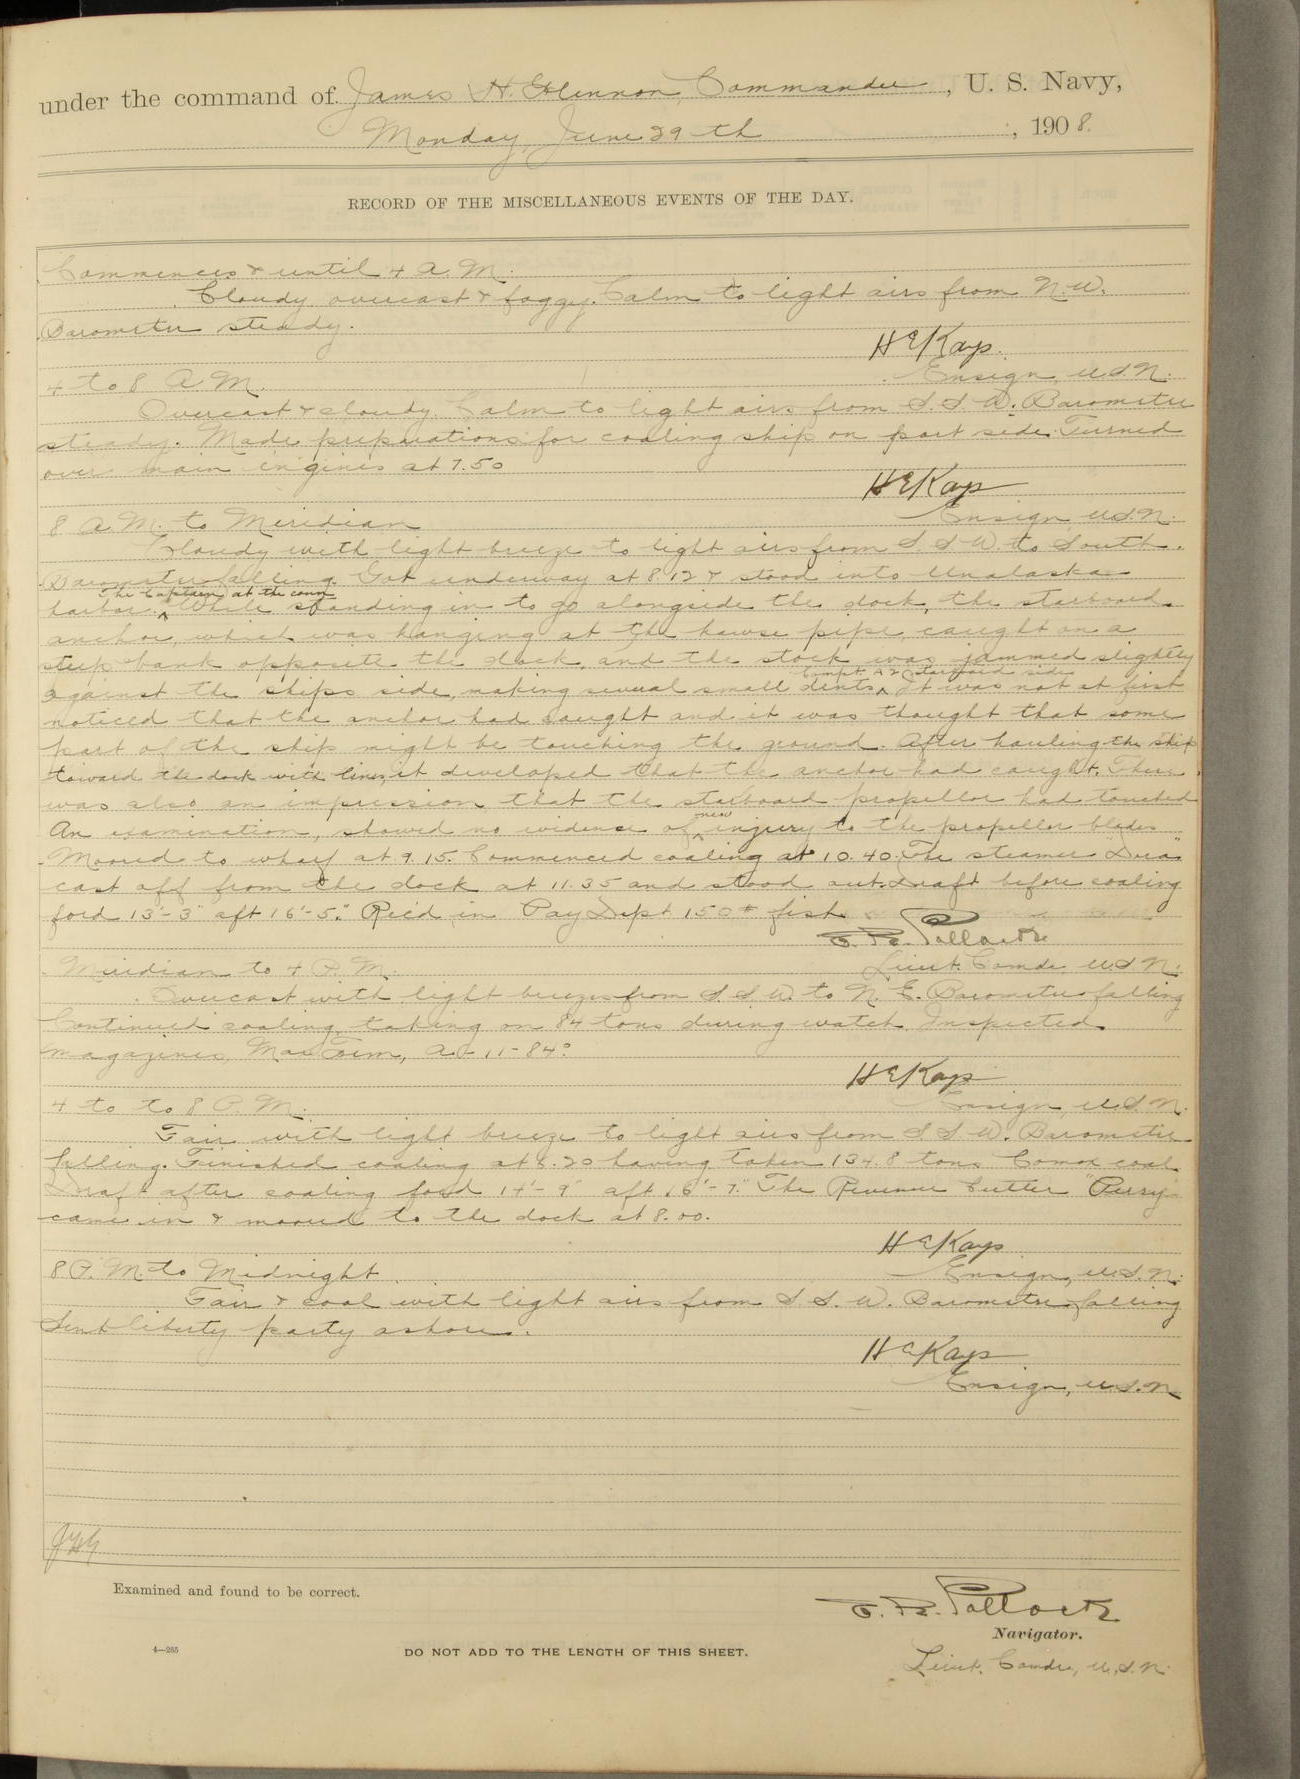 under the command of James H. Glennon, Commander, U. S. Navy,
Monday, June 29th, 1908.
RECORD OF THE MISCELLANEOUS EVENTS OF THE DAY.
Commences & until 4 A.M.
Cloudy, overcast & foggy. Calm to light airs from N.W.
Barometer steady.
H E Kays.
Ensign, U.S.N.
4 to 8 A.M.
Overcast & cloudy. Calm to light airs from S.S.W. Barometer
steady. Made preparations for coaling ship on port side. Turned
over main engines at 7.50
H E Kays
Ensign, U.S.N.
8 A.M. to Meridian
Cloudy with light breeze to light airs from S S W to South.
Barometer falling. Got underway at 8.12 & stood into Unalaska
The Captain at the conn
harbor. While standing in to go alongside the dock, the starboard
anchor, which was hanging at the hawse pipe, caught on a
steep bank opposite the dock, and the stock was jammed slightly
Compt. A 2 starboard side
against the ships side, making several small dents. It was not at first
noticed that the anchor had caught and it was thought that some
part of the ship might be touching the ground. After hauling the ship
toward the dock with lines, it developed that the anchor had caught. There
was also an impression that the starboard propellor had touched
new
An examination, showed no evidence of injury to the propellor blades
Moored to wharf at 9.15. Commenced coaling at 10.40. The steamer "Dora"
cast off from the dock at 11.35 and stood out. Draft before coaling
for'd 13'-3" aft 16'-5". Rec'd in Pay Dept 150# fish
E. R. Pollock
Lieut. Comdr U.S.N.
Meridian to 4 P.M.
Overcast with light breezes from S.S.W. to N.E. Barometer falling
Continued coaling taking on 84 tons during watch. Inspected
magazines, Max Tem, A-11-84°.
H E Kays
Ensign, U.S.N.
4 to to 8 P.M.
Fair with light breeze to light airs from S S W. Barometer
falling. Finished coaling at 5.20 having taken 134.8 tons Comox coal.
Draft after coaling for'd 14'-9" aft 16'-7". The Revenue Cutter "Perry"
came in & moored to the dock at 8.00.
H E Kays
Ensign, U.S.N.
8 P.M. to Midnight
Fair & cool with light airs from S. S. W. Barometer falling
Sent liberty party ashore.
H E Kays
Ensign, U.S.N.
JHG
Examined and found to be correct.
E. R. Pollock
Navigator.
4—285
DO NOT ADD TO THE LENGTH OF THIS SHEET.
Lieut. Comdr, U.S.N.